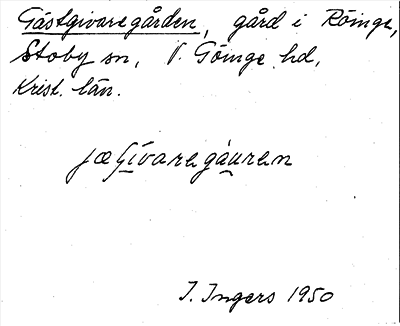 Gästgivaregården, gård i Röinge,
Stoby sn, V. Göinge hd,
Krist. län.
I. Ingers 1950